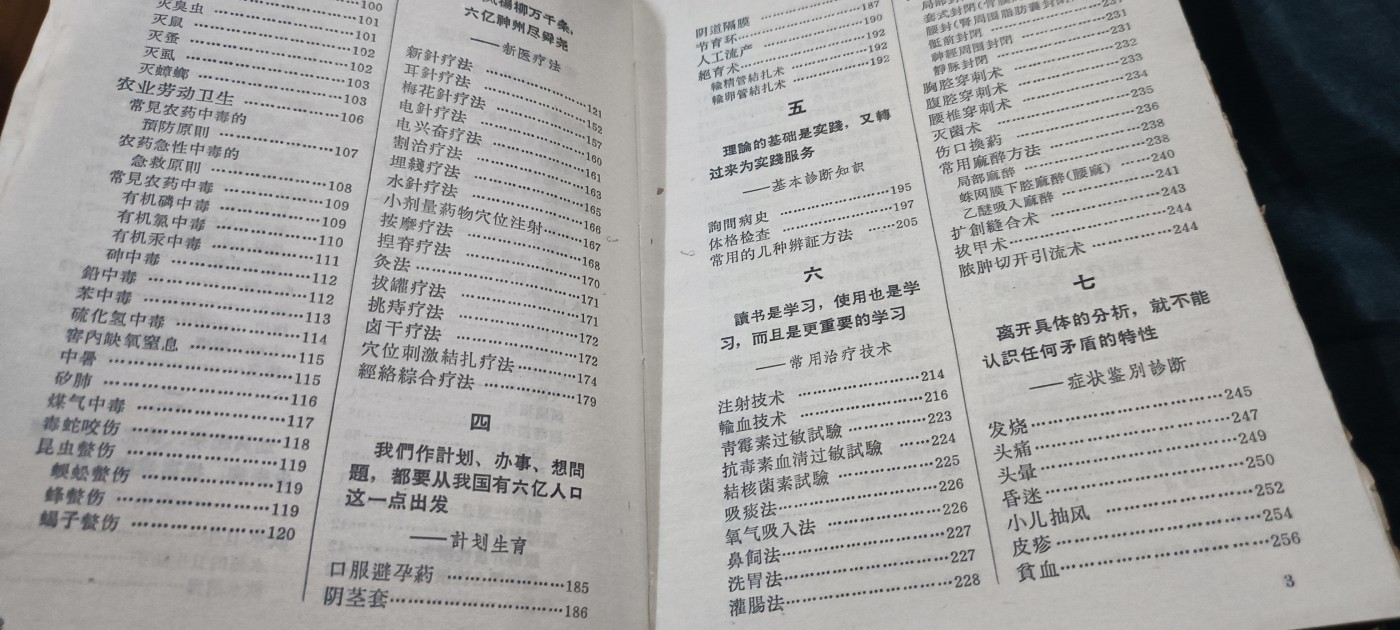 ……100
灭臭虫……101
灭鼠……101
灭蚤……102
灭虱……102
灭蟑螂……103
农业劳动卫生……103
常見农药中毒的
預防原則……106
农药急性中毒的
急救原則……107
常見农药中毒……108
有机磷中毒……109
有机氯中毒……109
有机汞中毒……110
砷中毒……111
鉛中毒……112
苯中毒……112
硫化氢中毒……113
窨內缺氧窒息……114
中暑……115
矽肺……115
煤气中毒……116
毒蛇咬伤……117
昆虫螫伤……118
蜈蚣螫伤……119
蜂螫伤……119
蝎子螫伤……120
楊柳万千条，
六亿神州尽舜尧
——新医疗法
新針疗法……121
耳針疗法……152
梅花針疗法……157
电針疗法……160
电兴奋疗法……161
割治疗法……161
埋綫疗法……163
水針疗法……165
小剂量药物穴位注射……166
按摩疗法……167
捏脊疗法……168
灸法……170
拔罐疗法……171
挑痔疗法……171
卤干疗法……172
穴位刺激結扎疗法……174
經絡綜合疗法……179
四
我們作計划、办事、想問
題，都要从我国有六亿人口
这一点出发
——計划生育
口服避孕葯……185
阴茎套……186
阴道隔膜……187
节育环……190
人工流产……192
絕育术……192
輸精管結扎术……192
輸卵管結扎术
五
理論的基础是实践，又轉
过来为实践服务
——基本診断知识
詢問病史……195
体格检查……197
常用的几种辨証方法……205
六
讀书是学习，使用也是学
习，而且是更重要的学习
——常用治疗技术
注射技术……214
輸血技术……216
青霉素过敏試驗……223
抗毒素血清过敏試驗……224
結核菌素試驗……225
吸痰法……226
氧气吸入法……226
鼻飼法……227
洗胃法……227
灌腸法……228
套式封閉
腰封(腎周围脂肪囊封閉)
骶前封閉……231
神經周围封閉……231
靜脉封閉……231
胸腔穿刺术……232
腹腔穿刺术……233
腰椎穿刺术……234
灭菌术……235
伤口換葯……236
常用麻醉方法……238
局部麻醉……238
蛛网膜下腔麻醉(腰麻)……240
乙醚吸入麻醉……241
扩創縫合术……243
拔甲术……244
脓肿切开引流术……244
七
离开具体的分析，就不能
认識任何矛盾的特性
——症状鉴別診断
发烧……245
头痛……247
头暈……249
昏迷……250
小儿抽风……252
皮疹……254
貧血……256
3